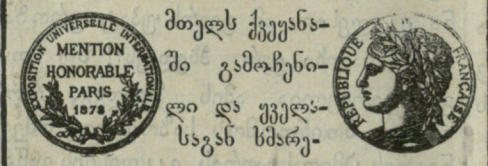 EXPOSITION UNIVERSELLE INTERNATIONALE
MENTION
HONORABLE
PARIS
1878
მთელს ქვეყანა-
ში გამოჩენი-
ლი და ყველა-
საგან ხმარე-
RÉPUBLIQUE FRANÇAISE